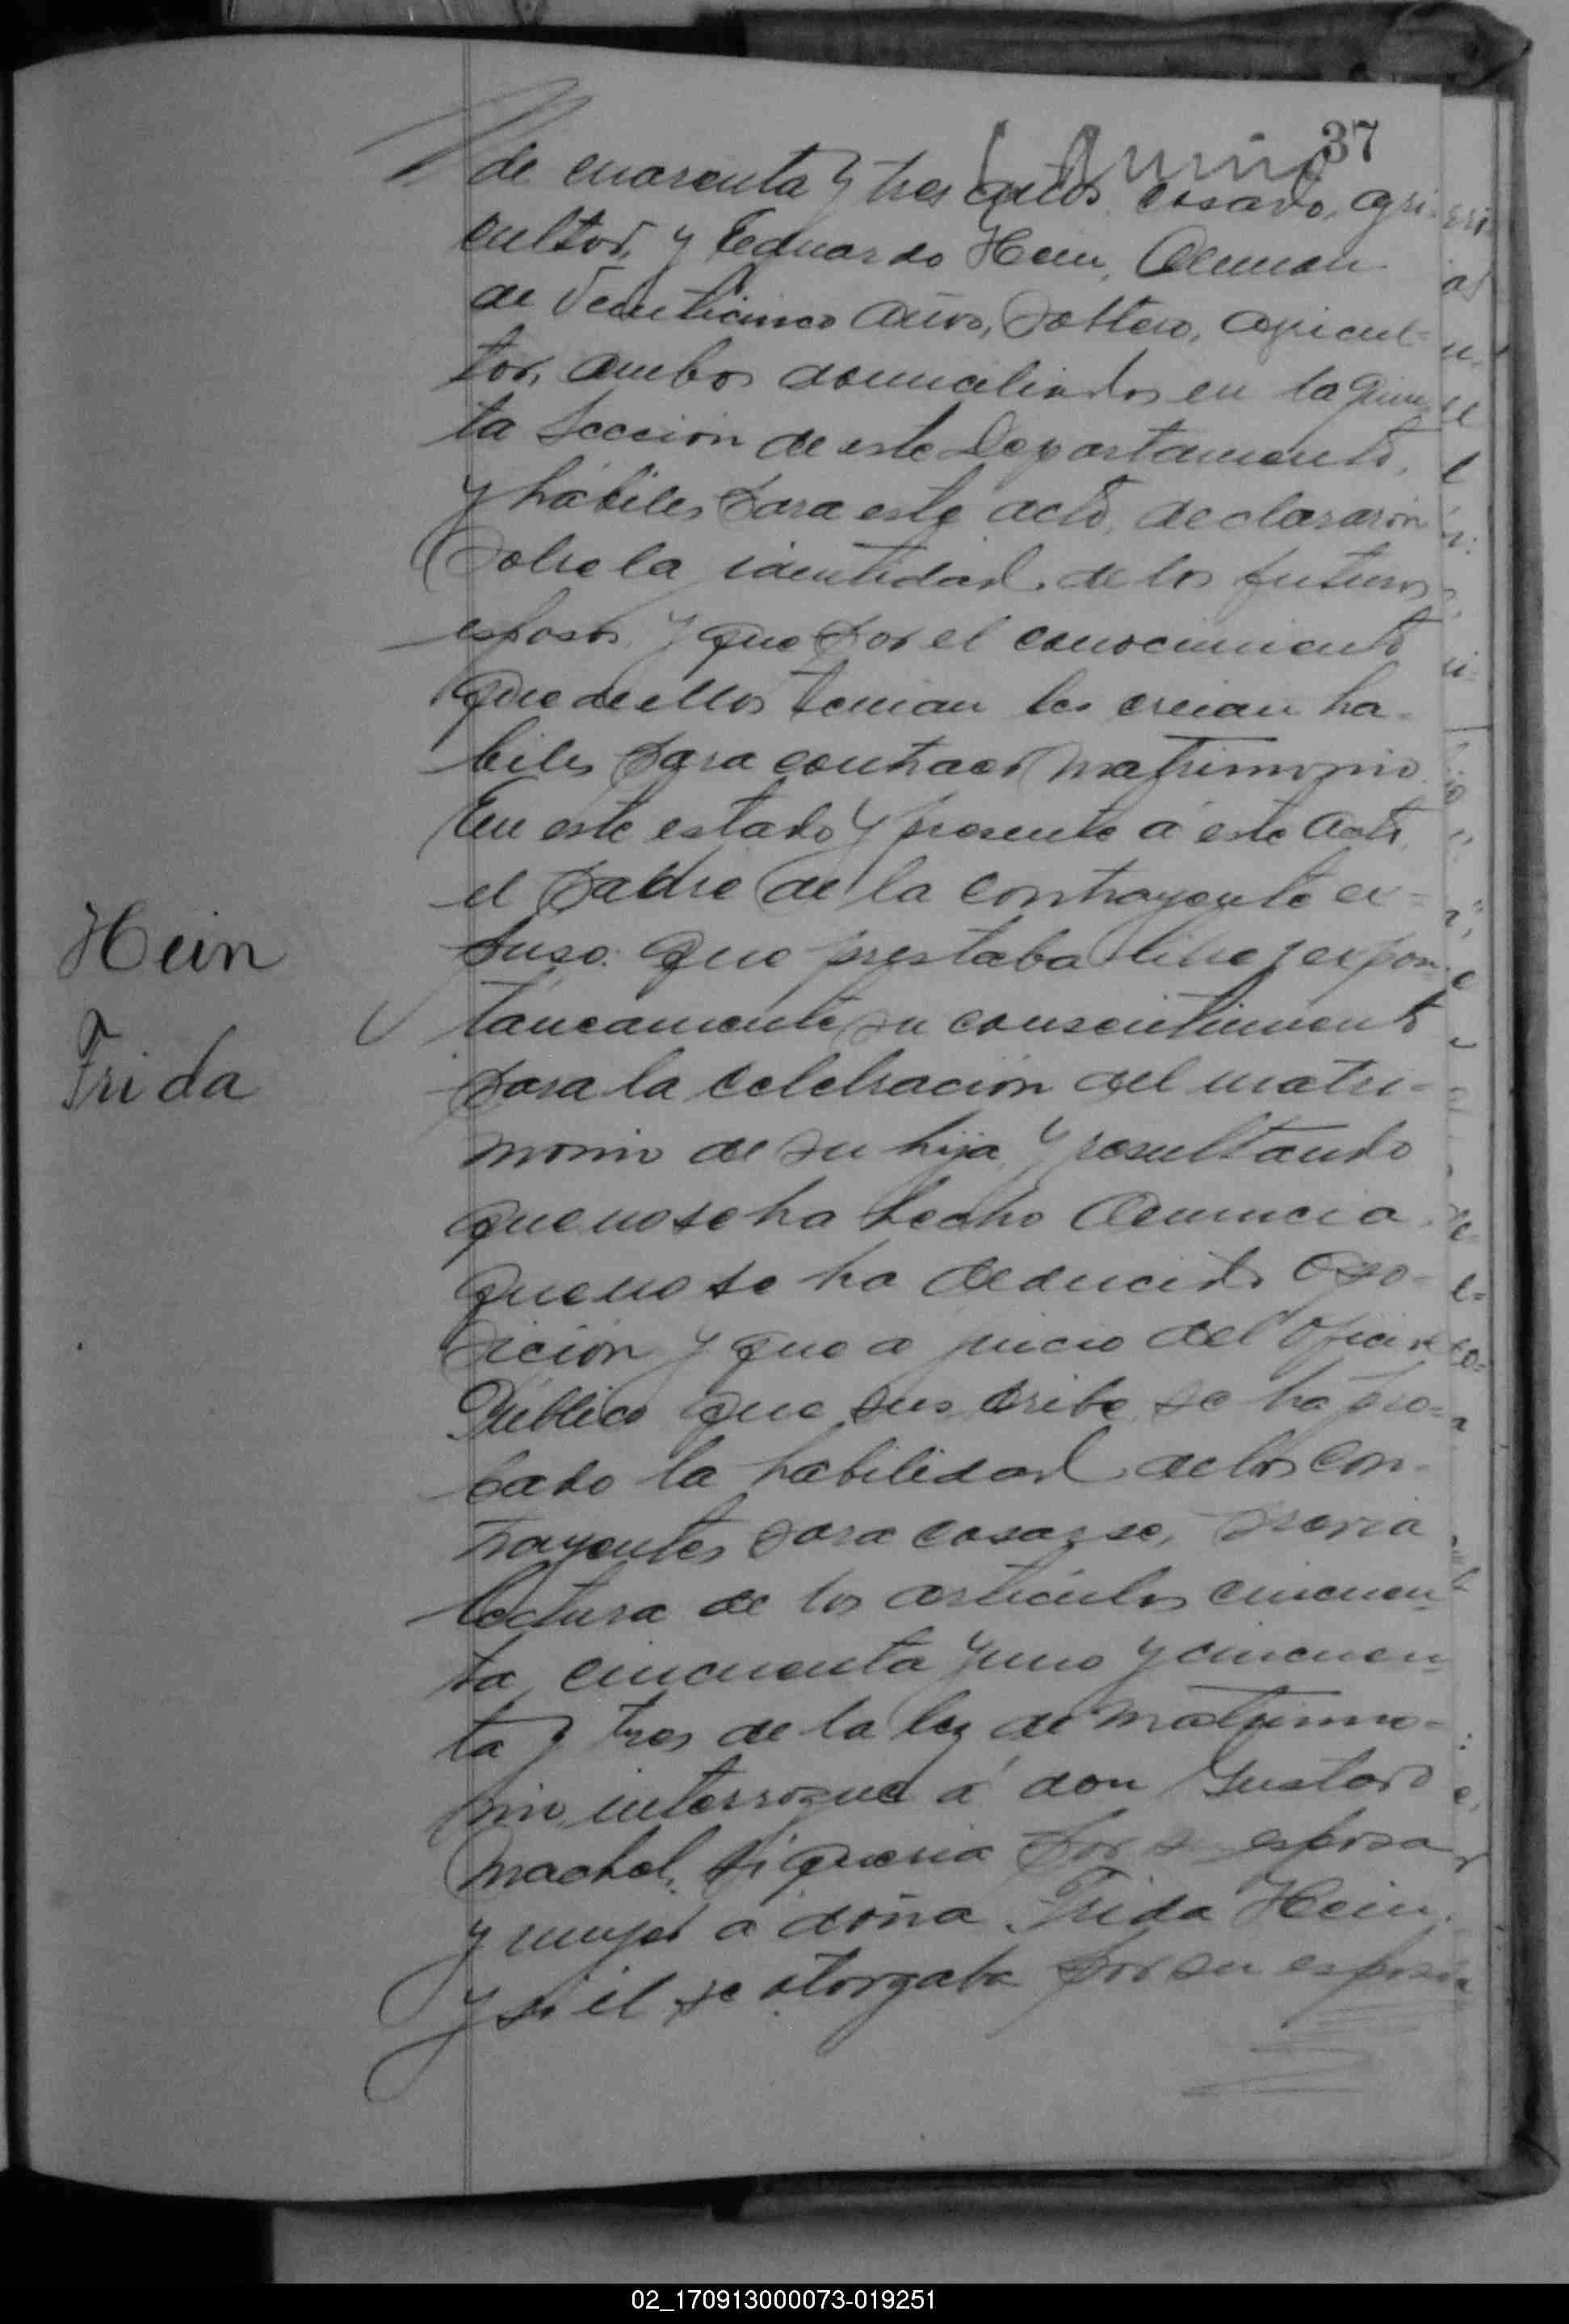 37
de cuarenta y tres años casado, agri-
cultor, y Eduardo Hein, Aleman
de Veinticinco años, Soltero, agricul-
tor, ambos domiciliados en la quin-
ta Sección de este Departamento,
y hábiles para este acto, declararon
Sobre la identidad de los futuros
esposos y que por el conocimiento
que de ellos tenian les creian ha-
biles para contraer matrimonio.
En este estado y presente á este acto,
el padre de la contrayente ex-
puso: que prestaba libre y expon-
táneamente su consentimiento
para la celebración del matri-
monio de su hija, y resultando
que no se ha hecho denuncia
que no se ha deducido opo-
sición y que a juicio del Oficial
Público que suscribe se ha pro-
bado la habilidad de los con-
trayentes para casarse, previa
lectura de los artículos cincuen-
ta cincuenta y uno y cincuen-
ta y tres de la ley de matrimo-
nio, interrogué á don Gustavo
Machel, si queria por su esposa
y mujer a doña Frida Hein,
y si él se otorgaba por su esposo
Hein
Frida
02_170913000073-019251